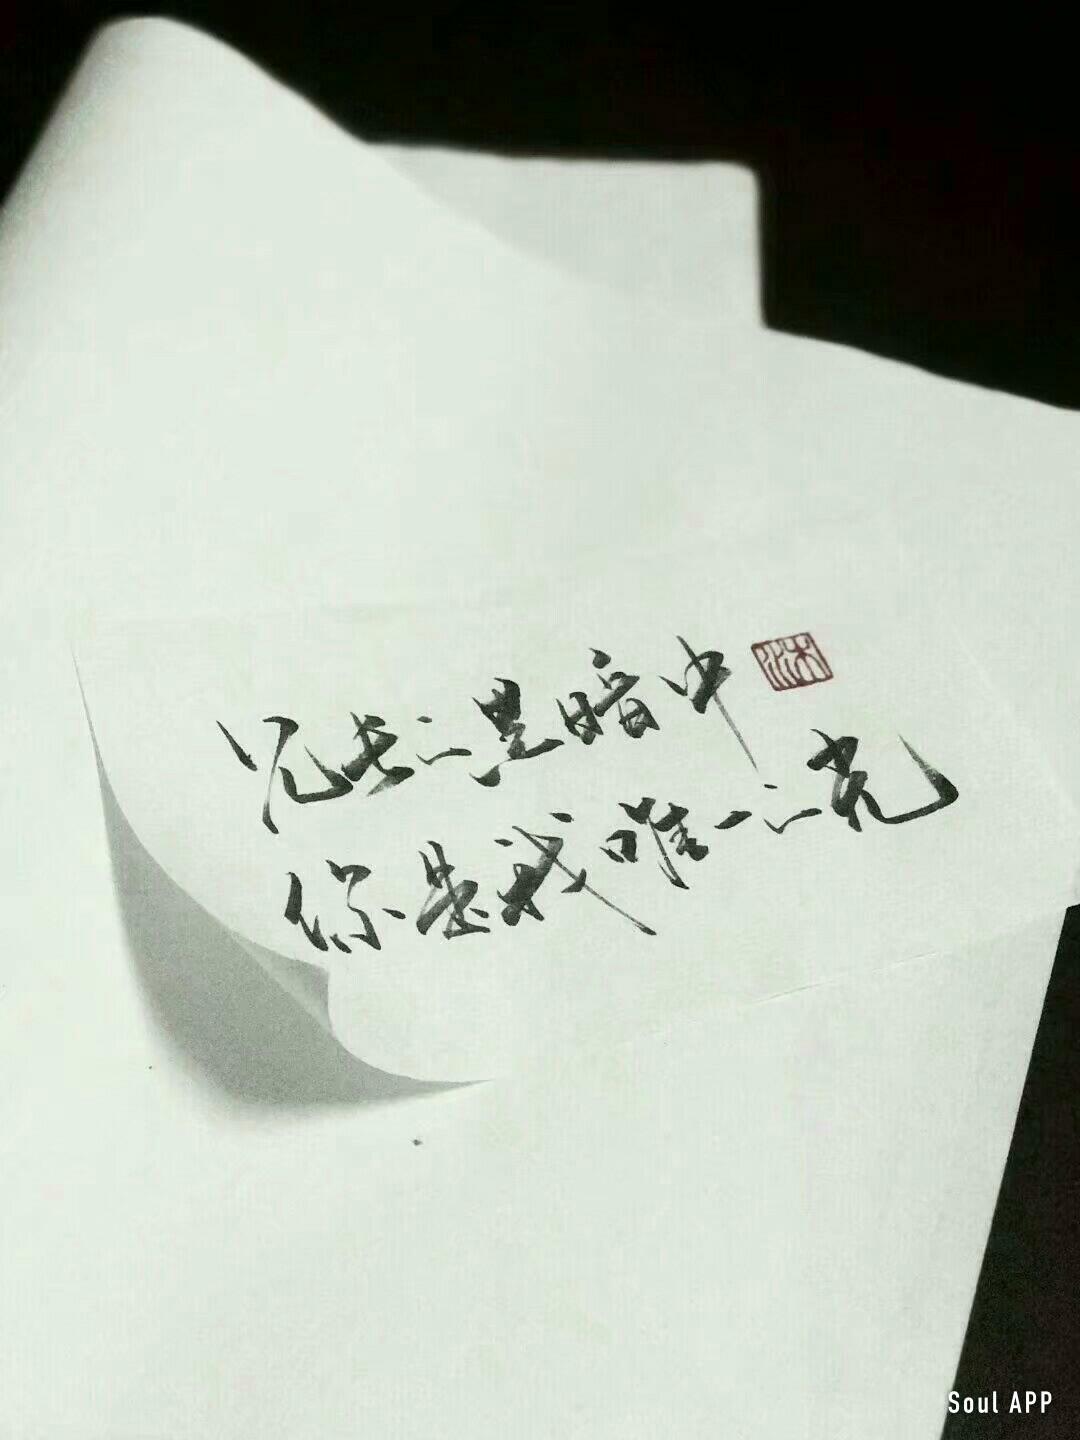 冗长之黑暗中
你是我唯一之光
Soul APP